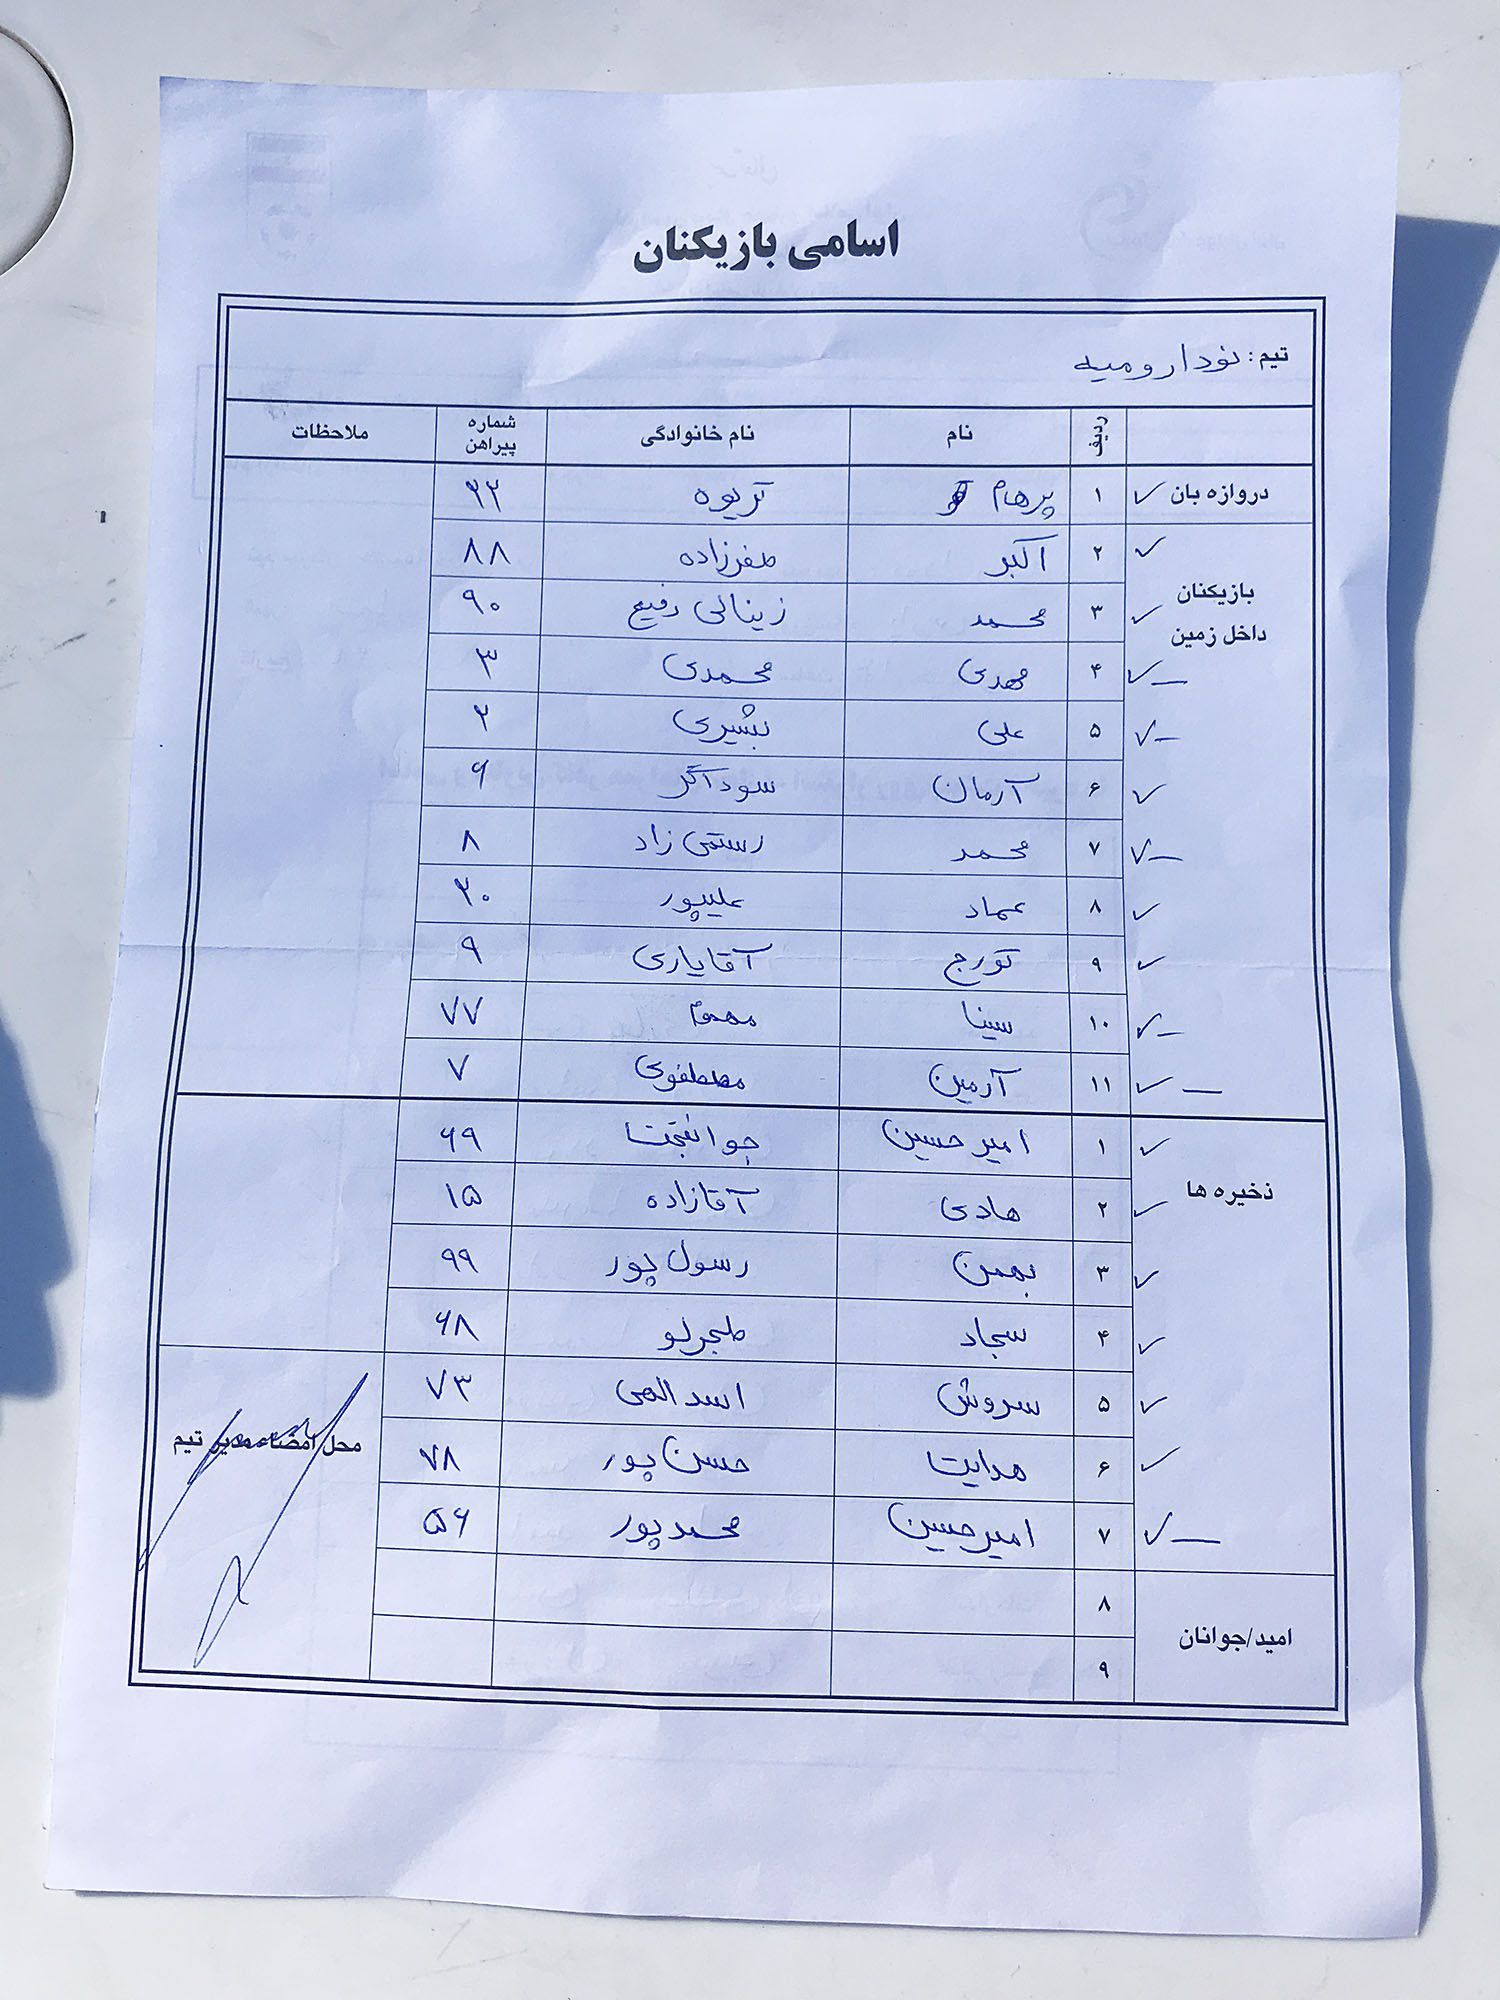 اسامی بازیکنان
تیم: نود ارومیه
ردیف نام نام خانوادگی شماره پیراهن ملاحظات
دروازه بان ✓ ۱ پرهام تریوه ۲۲
بازیکنان داخل زمین
✓ ۲ اکبر صفرزاده ۸۸
✓ ۳ محمد زینالی رفیع ۹۰
✓ ۴ مهدی محمدی ۳
✓ ۵ علی بشیری ۲
✓ ۶ آرمان سوداگر ۶
✓ ۷ محمد رستمی زاد ۸
✓ ۸ عماد علیپور ۲۰
✓ ۹ تورج آقایاری ۹
✓ ۱۰ سینا ۷۷
✓ ۱۱ آرمین مصطفوی ۷
ذخیره ها
✓ ۱ امیرحسین جوانبخت ۶۹
✓ ۲ هادی آقازاده ۱۵
✓ ۳ بهمن رسول پور ۹۹
✓ ۴ سجاد ۶۸
✓ ۵ سروش اسدالهی ۷۳
✓ ۶ هدایت حسن پور ۷۸
✓ ۷ امیرحسین محمدپور ۵۶
امید/جوانان
۸
۹
محل امضاء مدیر تیم